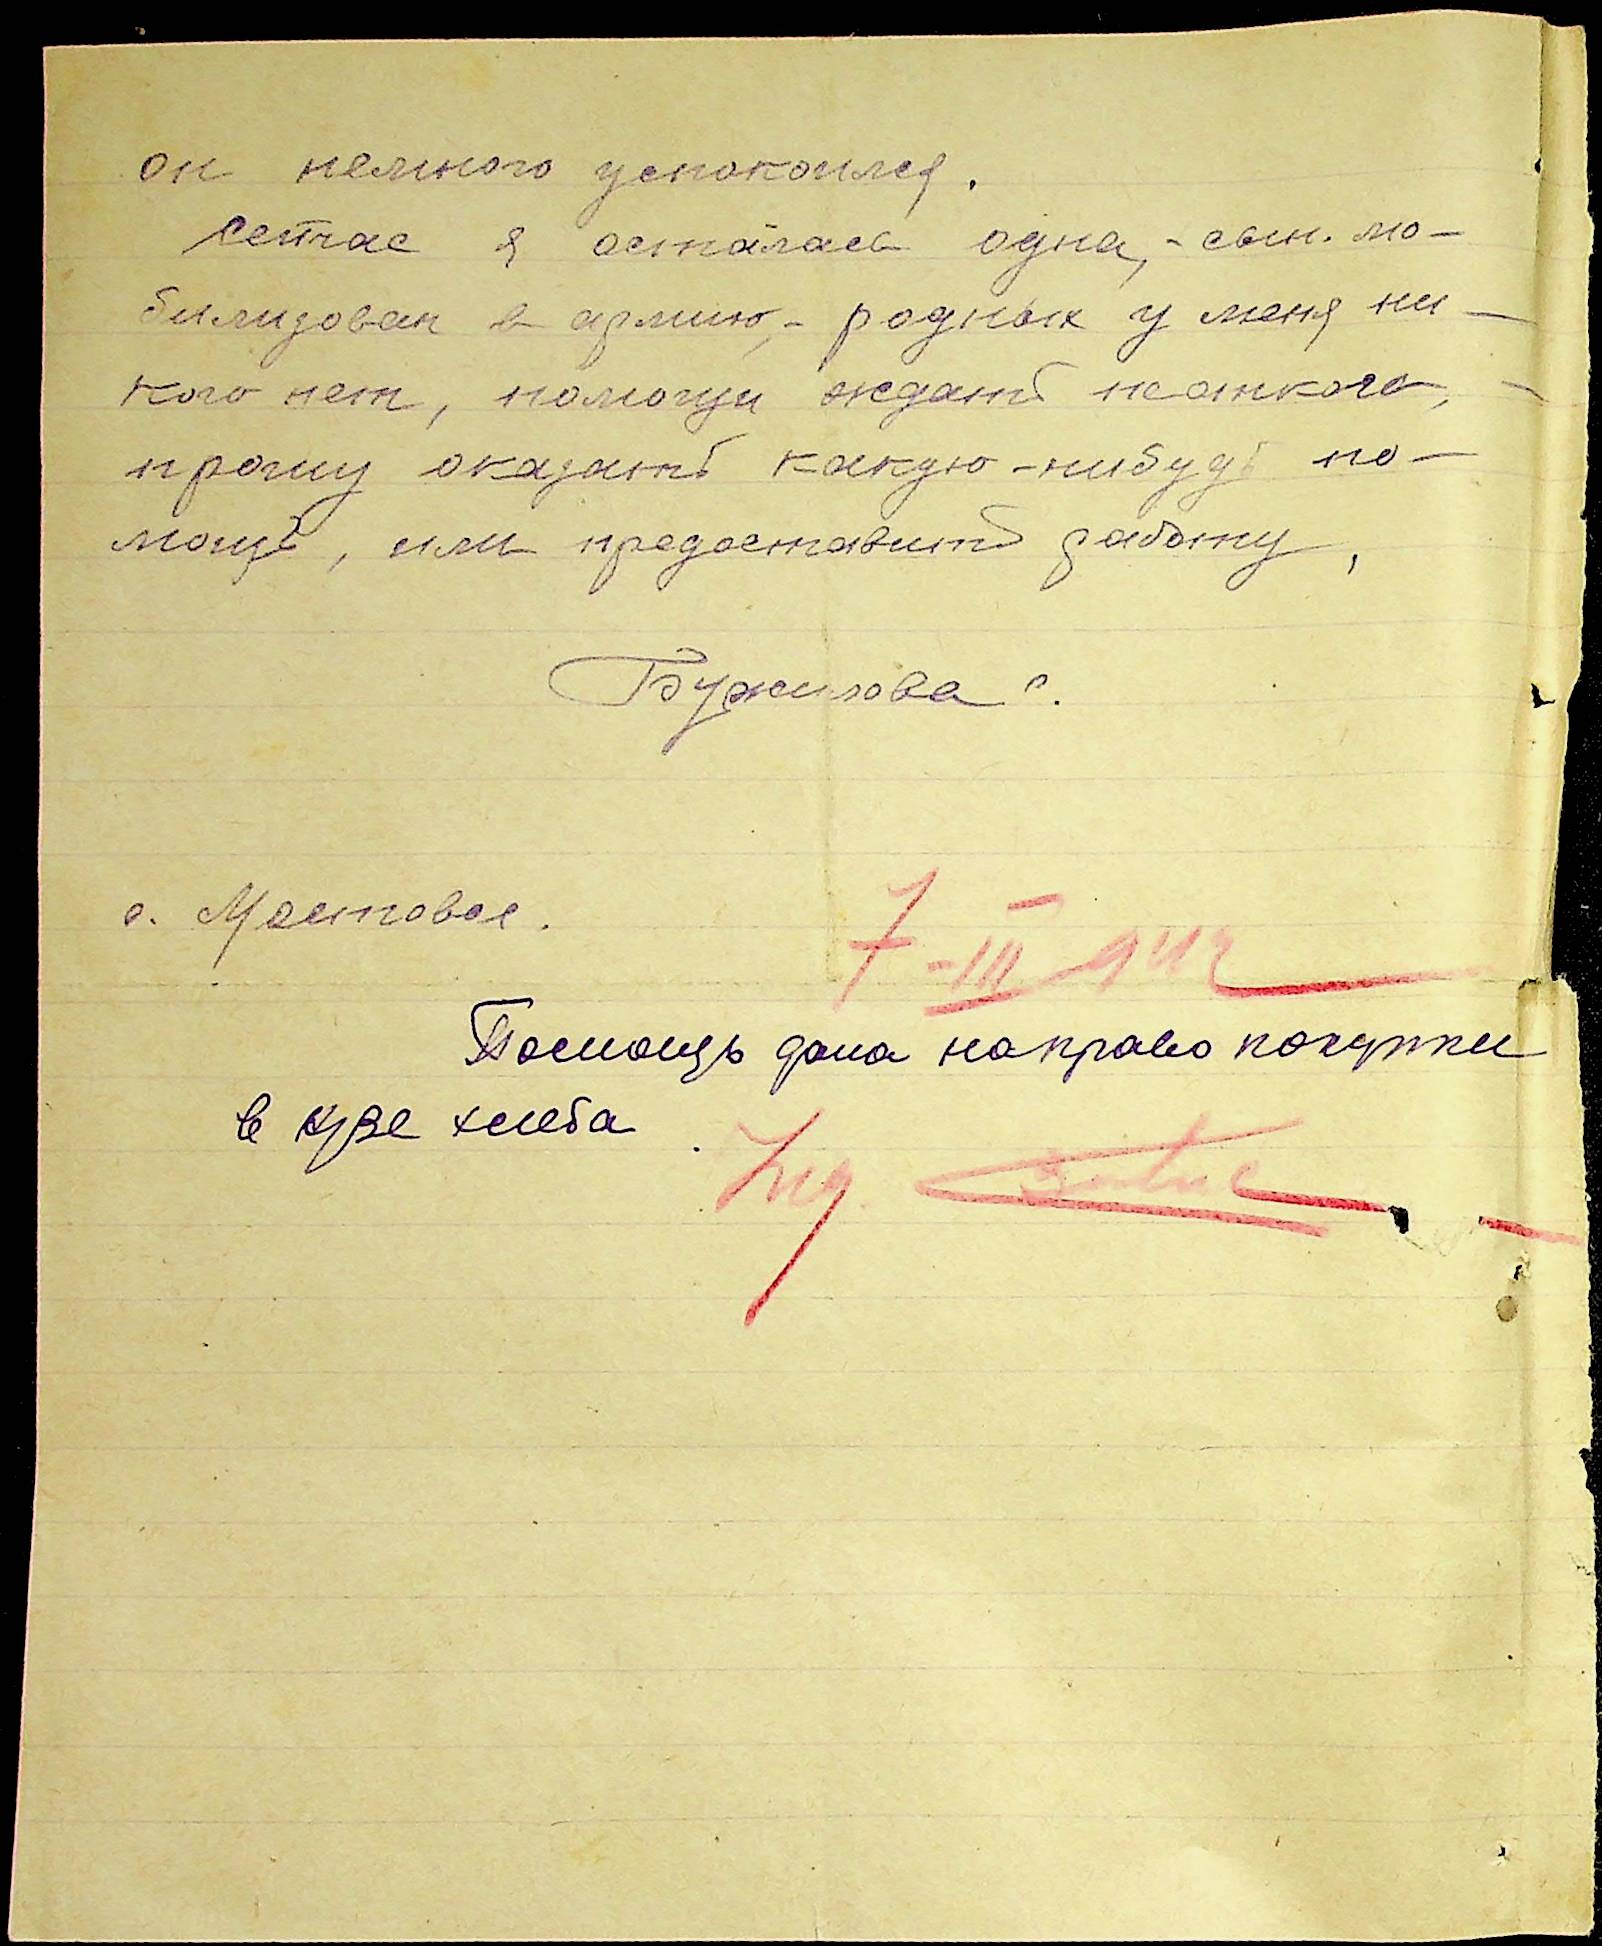 он немного успокоился.
Сейчас я осталась одна, - сын мо-
билизован в армию, - родных у меня ни-
кого нет, помощи ждать неоткого, -
прошу оказать какую-нибудь по-
мощь, или предоставить работу.
Бужилова
с. Мостовое.
7-III 942
Помощь дана направо покупки
в хлеба